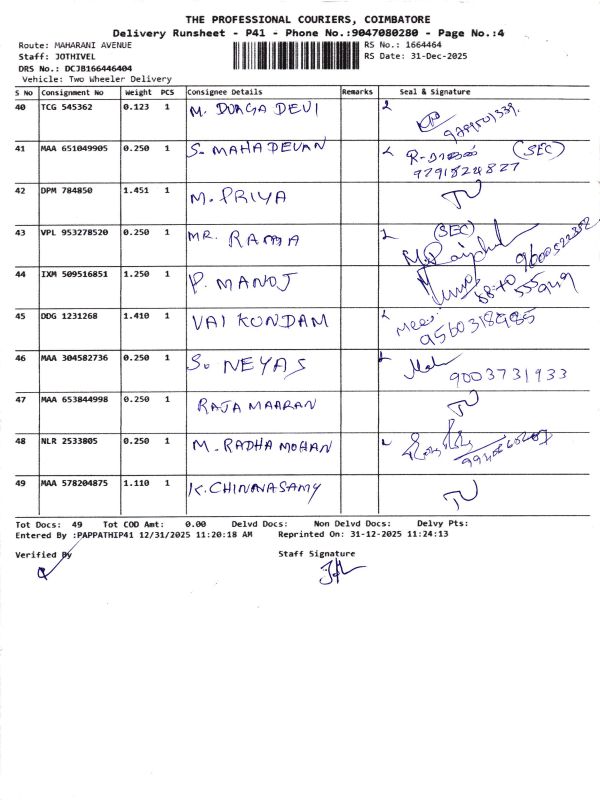 THE PROFESSIONAL COURIERS, COIMBATORE
Delivery Runsheet - P41 - Phone No.:9047080280 - Page No.:4
Route: MAHARANI AVENUE RS No.: 1664464
Staff: JOTHIVEL RS Date: 31-Dec-2025
DRS No.: DCJB166446404
Vehicle: Two Wheeler Delivery
S No Consignment No Weight PCS Consignee Details Remarks Seal & Signature
40 TCG 545362 0.123 1 M. DURGA DEVI
41 MAA 651049905 0.250 1 S. MAHADEVAN (SEC)
9791824827
42 DPM 784850 1.451 1 M. PRIYA
43 VPL 953278520 0.250 1 MR. RAMA (SEC)
44 IXM 509516851 1.250 1 P. MANOJ
45 DDG 1231268 1.410 1 VAIKUNDAM
46 MAA 304582736 0.250 1 S. NEYAS
9003731933
47 MAA 653844998 0.250 1 RAJA MAARAN
48 NLR 2533805 0.250 1 M. RADHA MOHAN
49 MAA 578204875 1.110 1 K. CHINNASAMY
Tot Docs: 49 Tot COD Amt: 0.00 Delvd Docs: Non Delvd Docs: Delvy Pts:
Entered By :PAPPATHIP41 12/31/2025 11:20:18 AM Reprinted On: 31-12-2025 11:24:13
Verified By Staff Signature